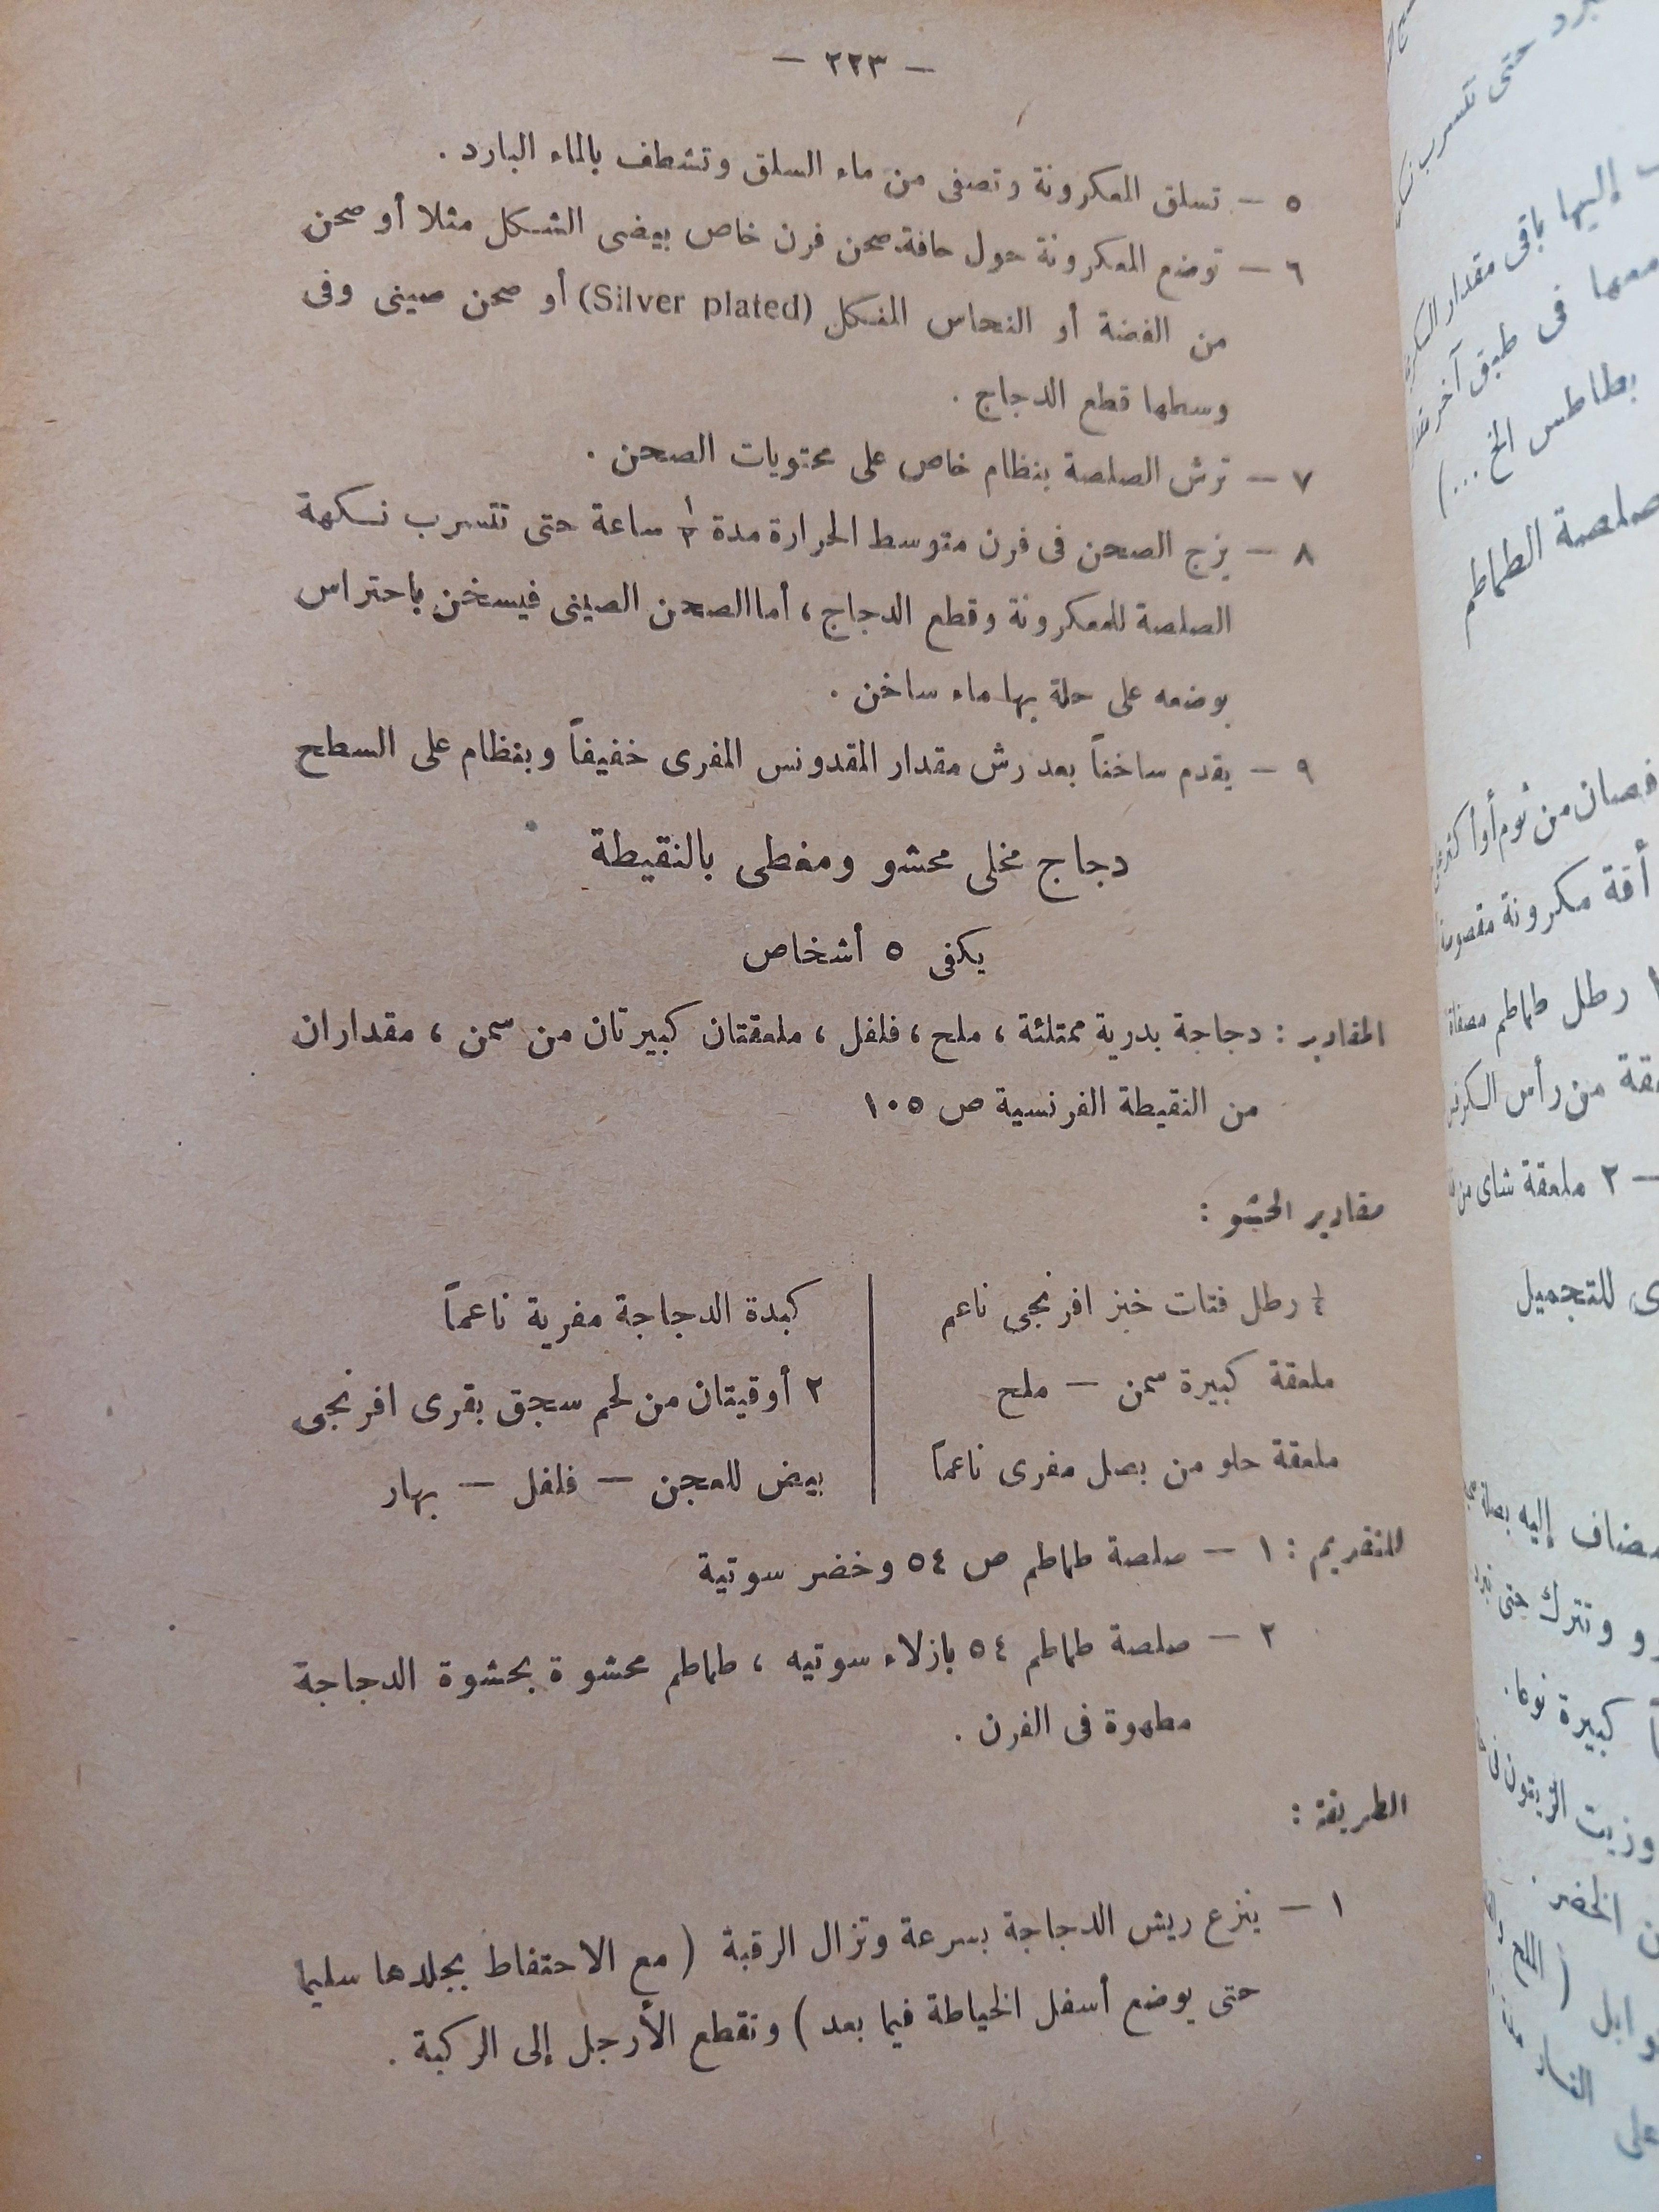 — ٢٢٣ —
٥ — تسلق المعكرونة وتصفى من ماء السلق وتشطف بالماء البارد .
٦ — توضع المعكرونة حول حافة صحن فرن خاص بيضى الشكل مثلا أو صحن
من الفضة أو النحاس المنكل (Silver plated) أو صحن صينى وفى
وسطها قطع الدجاج .
٧ — ترش الصلصة بنظام خاص على محتويات الصحن .
٨ — يزج الصحن فى فرن متوسط الحرارة مدة ساعة حتى تتسرب نكهة
الصلصة للمعكرونة وقطع الدجاج ، أما الصحن الصينى فيسخن باحتراس
بوضعه على حلة بها ماء ساخن .
٩ — يقدم ساخناً بعد رش مقدار المقدونس المفرى خفيفاً وبنظام على السطح
دجاج مخلى محشو ومغطى بالنقيطة
يكفى ٥ أشخاص
المقادير : دجاجة بدرية ممتلئة ، ملح ، فلفل ، ملعقتان كبيرتان من سمن ، مقداران
من النقيطة الفرنسية ص ١٠٥
مقادير الحشو :
¼ رطل فتات خبز افرنجى ناعم
ملعقة كبيرة سمن — ملح
ملعقة حلو من بصل مفرى ناعماً
كبدة الدجاجة مفرية ناعماً
٢ أوقيتان من لحم سجق بقرى افرنجى
بيض للعجن — فلفل — بهار
للتقديم : ١ — صلصة طماطم ص ٥٤ وخضر سوتية
٢ — صلصة طماطم ٥٤ بازلاء سوتيه ، طماطم محشوة بحشوة الدجاجة
مطهوة فى الفرن .
الطريقة :
١ — ينزع ريش الدجاجة بسرعة وتزال الرقبة ( مع الاحتفاظ بجلدها سليما
حتى يوضع أسفل الخياطة فيما بعد ) وتقطع الأرجل إلى الركبة .
حتى تتسرب
إليها باقى مقدار
معها فى طبق آخر
بطاطس الخ ... )
صلصة الطماطم
فصان من ثوم أو أكثر
أقة مكرونة مقصوصة
رطل طماطم مصفاة
من رأس الكرفس
— ٢ ملعقة شاى من
للتجميل
يضاف إليه بصلة
وتترك حتى
كبيرة نوعا .
وزيت الزيتون
الخضر
على